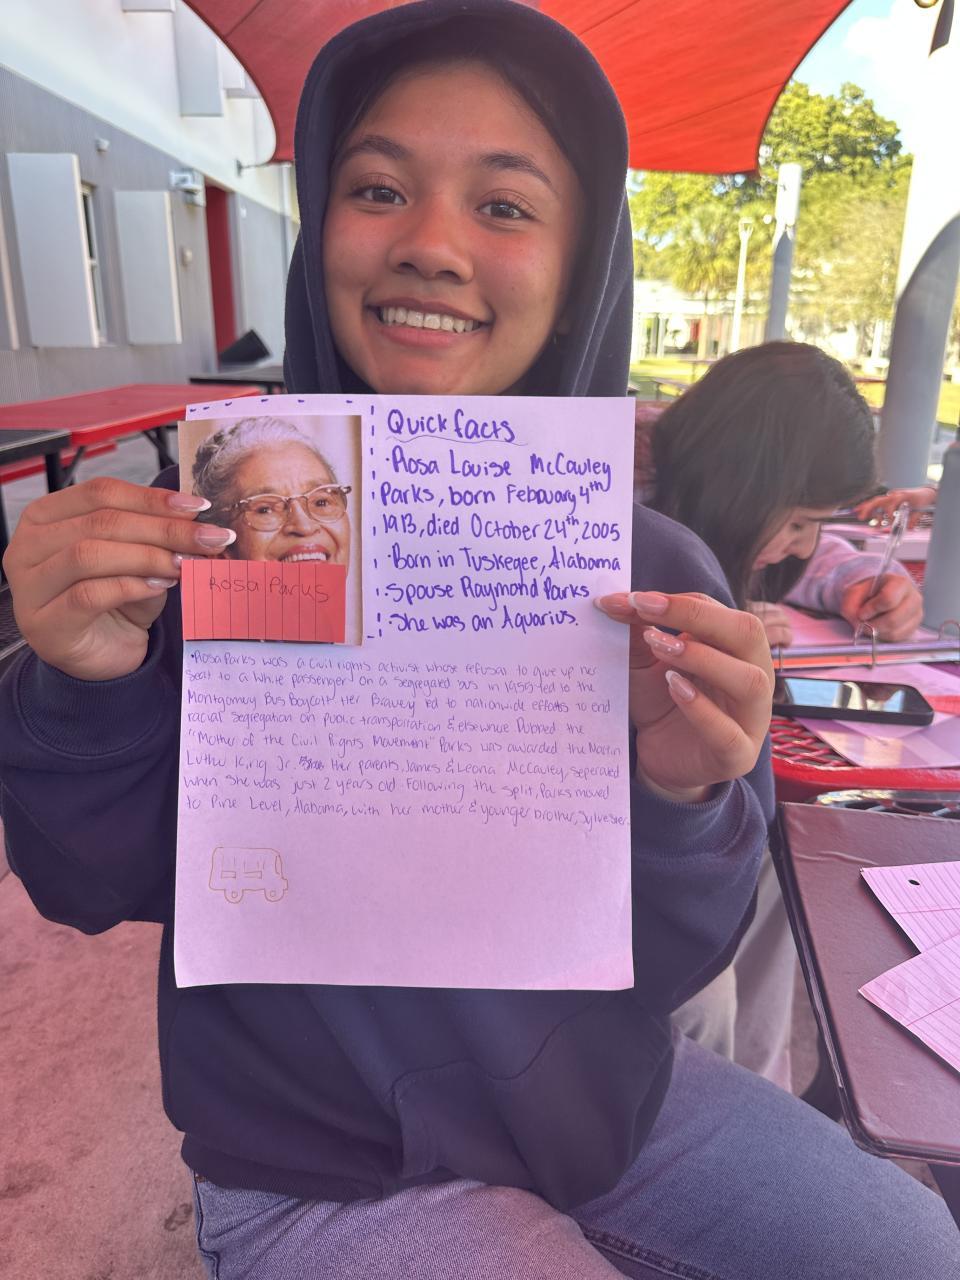 Quick facts
·Rosa Louise McCauley
Parks, born February 4th
1913, died October 24th, 2005
·Born in Tuskegee, Alabama
·Spouse Raymond Parks
·She was an Aquarius.
Rosa Parks
·Rosa Parks was a civil rights activist whose refusal to give up her
seat to a white passenger on a segregated bus in 1955 led to the
Montgomery Bus Boycott. Her Bravery led to nationwide efforts to end
racial segregation on public transportation & elsewhere Dubbed the
"Mother of the Civil Rights Movement" Parks was awarded the Martin
Luther King Jr. Her parents, James & Leona McCauley, seperated
when she was just 2 years old. Following the split, Parks moved
to Pine Level, Alabama, with her mother & younger brother, Sylvester.